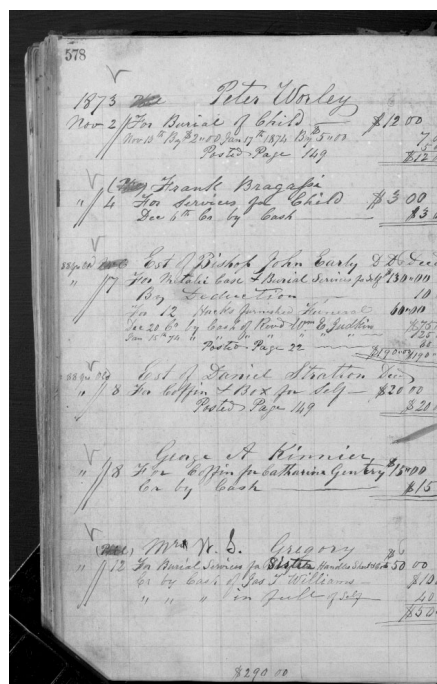 578
1873 Peter Worley
Nov 2 For Burial of Child $12 00
Nov 13th By $2"00 Jan 17th 1874 By $5"00
Posted Page 149 $12
Frank Bragassi
" 4 For Services for Child $3 00
Dec 6th Cr by Cash $3
Est of Bishop John Early D.D.
" 7 For Metalic Case & Burial Services for Self $130"00
By Deduction 10
For 12 Hacks furnished Funeral 60"00
Dec 20 Cr by Cash of Revd Wm E Judkins
Jan 15th 74 " " " " "
Posted Page 22 $190"00
88 yrs Old Est of Daniel Stratton
" 8 For Coffin & Box for Self $20 00
Posted Page 149 $20
George A Kinnier
" 8 For Coffin for Catharine Gentry $15"00
Cr by Cash $15
Mrs W. S. Gregory
" 12 For Burial Services for Sister $50 00
Cr by Cash of Jas T Williams $10
" " " in full of Self 40
$50
$290.00